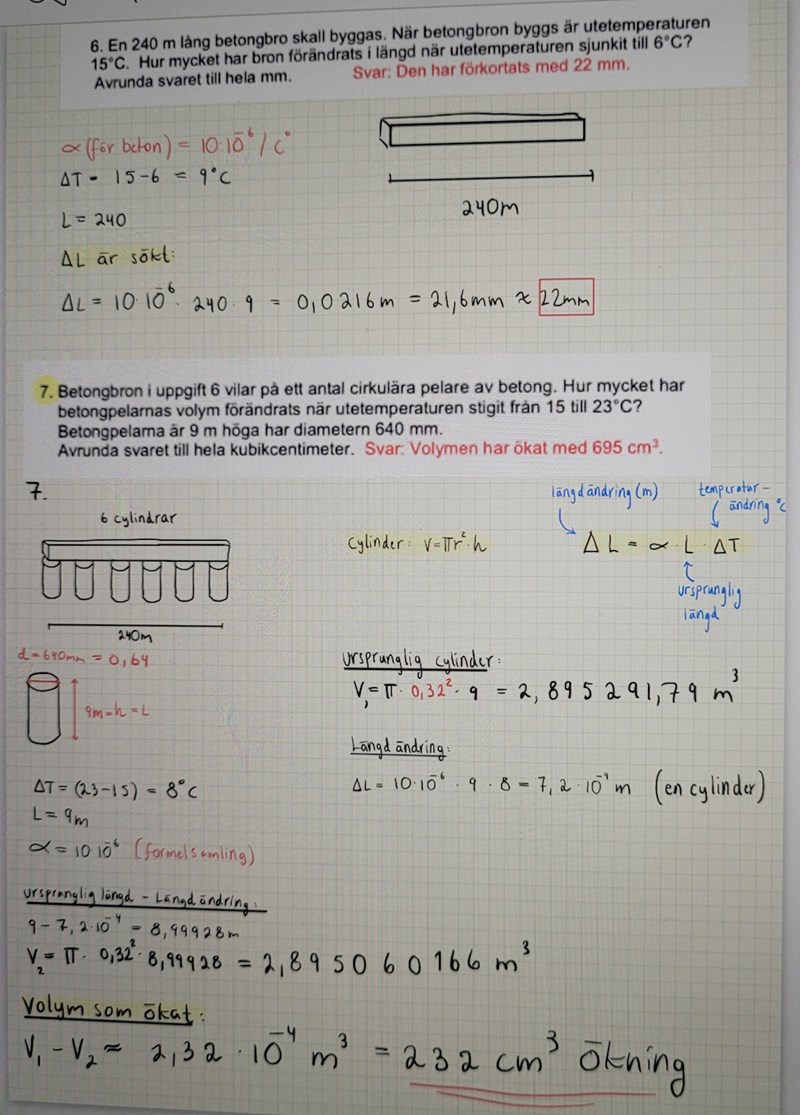 6. En 240 m lång betongbro skall byggas. När betongbron byggs är utetemperaturen
15°C. Hur mycket har bron förändrats i längd när utetemperaturen sjunkit till 6°C?
Avrunda svaret till hela mm. Svar: Den har förkortats med 22 mm.
α (för beton) = 10·10⁻⁶ / C°
ΔT = 15-6 = 9°C
L = 240
240m
ΔL är sökt:
ΔL = 10·10⁻⁶ · 240 · 9 = 0,0216m = 21,6mm ≈ 22mm
7. Betongbron i uppgift 6 vilar på ett antal cirkulära pelare av betong. Hur mycket har
betongpelarnas volym förändrats när utetemperaturen stigit från 15 till 23°C?
Betongpelarna är 9 m höga har diametern 640 mm.
Avrunda svaret till hela kubikcentimeter. Svar: Volymen har ökat med 695 cm³.
7.
6 cylindrar
240m
Cylinder: V=πr²·h
längdändring (m)
temperatur-
ändring °C
ΔL = α · L · ΔT
ursprunglig
längd
d=640mm = 0,64
9m=h=L
ursprunglig cylinder:
V₁=π · 0,32² · 9 = 2,895291,79 m³
Längdändring:
ΔL = 10·10⁻⁶ · 9 · 8 = 7,2 · 10⁻⁴ m (en cylinder)
ΔT = (23-15) = 8°C
L = 9m
α = 10 10⁻⁶ (formelsamling)
ursprunglig längd - Längdändring:
9 - 7,2·10⁻⁴ = 8,99928m
V₂ = π · 0,32² · 8,99928 = 2,895060166 m³
Volym som ökat:
V₁ - V₂ ≈ 2,32 · 10⁻⁴ m³ = 232 cm³ ökning